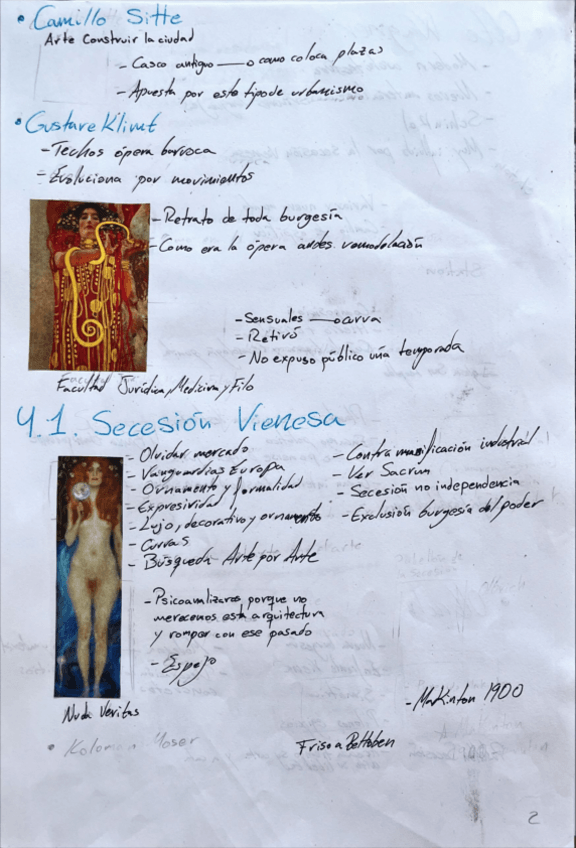 • Camillo Sitte
Arte Construir la ciudad
- Casco antiguo —o como coloca plazas
- Apuesta por este tipo de urbanismo
• Gustave Klimt
- Techos ópera barroca
- Evoluciona por movimientos
- Retrato de toda burgesía
- Como era la ópera antes remodelación
- Sensuales —o curva
- Retiró
- No expuso público una temporada
Facultad Jurídica, Medizina y Filo
4.1. Secesión Vienesa
- Olvidar mercado
- Vanguardias Europa
- Ornamento y formalidad
- Expresividad
- Lujo, decorativo y ornamento
- Curvas
- Búsqueda Arte por Arte
- Contra masificación industrial
- Ver Sacrum
- Secesión no independencia
- Exclusión burgesía del poder
- Psicoanalizarse porque no
merecemos esta arquitectura
y romper con ese pasado
- Espejo
Nuda Veritas
- Makinton 1900
• Koloman Moser
Friso a Bethoben
2